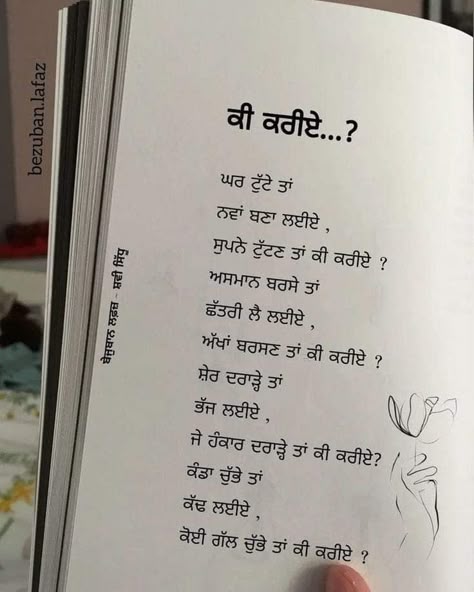 bezuban.lafaz
ਬੇਜ਼ੁਬਾਨ ਲਫ਼ਜ਼ - ਸ਼ਵੀ ਸਿੱਧੂ
ਕੀ ਕਰੀਏ...?
ਘਰ ਟੁੱਟੇ ਤਾਂ
ਨਵਾਂ ਬਣਾ ਲਈਏ ,
ਸੁਪਨੇ ਟੁੱਟਣ ਤਾਂ ਕੀ ਕਰੀਏ ?
ਅਸਮਾਨ ਬਰਸੇ ਤਾਂ
ਛੱਤਰੀ ਲੈ ਲਈਏ ,
ਅੱਖਾਂ ਬਰਸਣ ਤਾਂ ਕੀ ਕਰੀਏ ?
ਸ਼ੇਰ ਦਰਾੜ੍ਹੇ ਤਾਂ
ਭੱਜ ਲਈਏ ,
ਜੇ ਹੰਕਾਰ ਦਰਾੜ੍ਹੇ ਤਾਂ ਕੀ ਕਰੀਏ?
ਕੰਡਾ ਚੁੱਭੇ ਤਾਂ
ਕੱਢ ਲਈਏ ,
ਕੋਈ ਗੱਲ ਚੁੱਭੇ ਤਾਂ ਕੀ ਕਰੀਏ ?